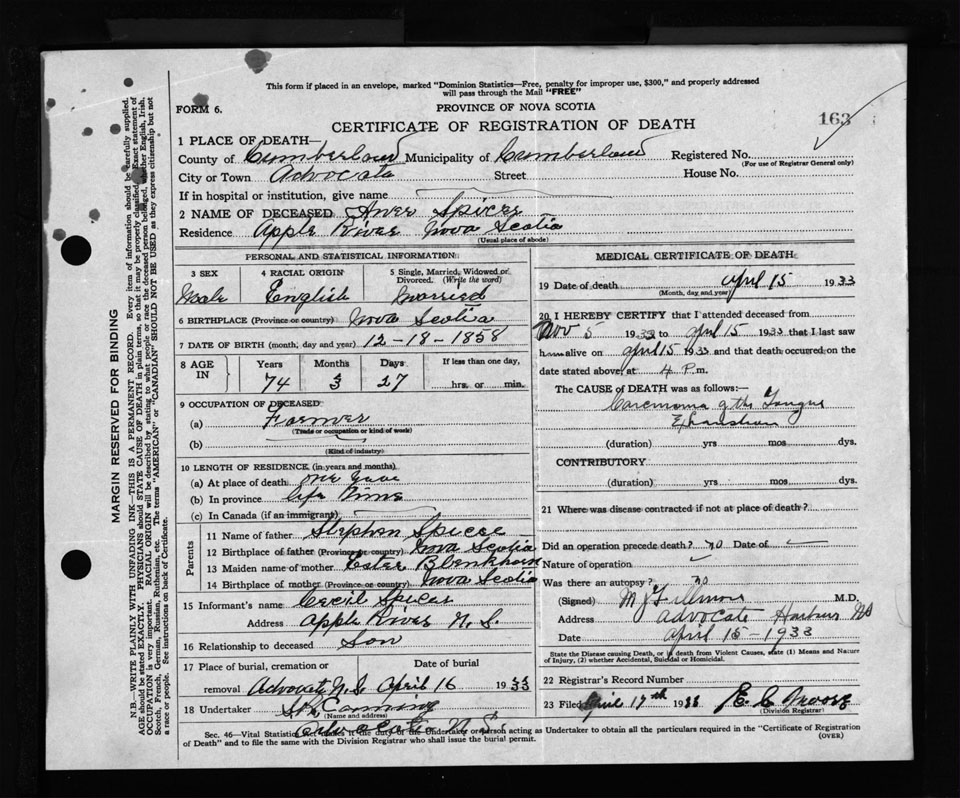 This form if placed in an envelope, marked "Dominion Statistics—Free, penalty for improper use, $300," and properly addressed
will pass through the Mail "FREE"
FORM 6.
PROVINCE OF NOVA SCOTIA
163
CERTIFICATE OF REGISTRATION OF DEATH
1 PLACE OF DEATH—
County of Cumberland Municipality of Cumberland Registered No.
(For use of Registrar General only)
City or Town Advocate Street House No.
If in hospital or institution, give name
2 NAME OF DECEASED Spicer
Residence Apple River Nova Scotia
(Usual place of abode)
PERSONAL AND STATISTICAL INFORMATION
3 SEX 4 RACIAL ORIGIN 5 Single, Married, Widowed or Divorced. (Write the word)
Male English Married
6 BIRTHPLACE (Province or country) Nova Scotia
7 DATE OF BIRTH (month, day and year) 12-18-1858
8 AGE IN Years Months Days If less than one day,
74 3 27 hrs. or min.
9 OCCUPATION OF DECEASED
(a) Farmer
(Trade or occupation or kind of work)
(b)
(Kind of industry)
10 LENGTH OF RESIDENCE (in years and months)
(a) At place of death one
(b) In province life time
(c) In Canada (if an immigrant)
Parents
11 Name of father Stephen Spicer
12 Birthplace of father (Province or country) Nova Scotia
13 Maiden name of mother Ester Blenkhorn
14 Birthplace of mother (Province or country) Nova Scotia
15 Informant's name Cecil Spicer
Address Apple River N.S.
16 Relationship to deceased Son
17 Place of burial, cremation or removal Date of burial
Advocate N.S. April 16 1933
18 Undertaker Canning
(Name and address)
Advocate N.S.
MEDICAL CERTIFICATE OF DEATH
19 Date of death April 15 1933
(Month, day and year)
20 I HEREBY CERTIFY that I attended deceased from
Nov 5 1932 to April 15 1933 that I last saw
him alive on April 15 1933 and that death occurred on the
date stated above, at 4 P.m.
The CAUSE OF DEATH was as follows:—
Carcinoma of the Tongue
Exhaustion
(duration) yrs mos dys.
CONTRIBUTORY
(duration) yrs. mos. dys.
21 Where was disease contracted if not at place of death?
Did an operation precede death? no Date of
Nature of operation
Was there an autopsy? no
(Signed) M J Fillmore M.D.
Address Advocate Harbour NS
Date April 15-1933
State the Disease causing Death, or in death from Violent Causes, state (1) Means and Nature
of Injury, (2) whether Accidental, Suicidal or Homicidal.
22 Registrar's Record Number
23 Filed April 17th 1933 E. C.
(Division Registrar)
Sec. 46—Vital Statistics Act makes it the duty of the Undertaker or person acting as Undertaker to obtain all the particulars required in the "Certificate of Registration
of Death" and to file the same with the Division Registrar who shall issue the burial permit.
(OVER)
MARGIN RESERVED FOR BINDING
N.B.—WRITE PLAINLY WITH UNFADING INK—THIS IS A PERMANENT RECORD. Every item of information should be carefully supplied.
AGE should be stated EXACTLY. PHYSICIANS should STATE CAUSE OF DEATH in plain terms, so that it may be properly classified. Exact statement of
OCCUPATION is very important. RACIAL ORIGIN will be described by stating to what people or race the deceased person belonged, whether English, Irish,
Scotch, French, German, Russian, Ruthenian, etc. The terms "AMERICAN" or "CANADIAN" SHOULD NOT BE USED as they express citizenship but not
a race or people. See instructions on back of Certificate.